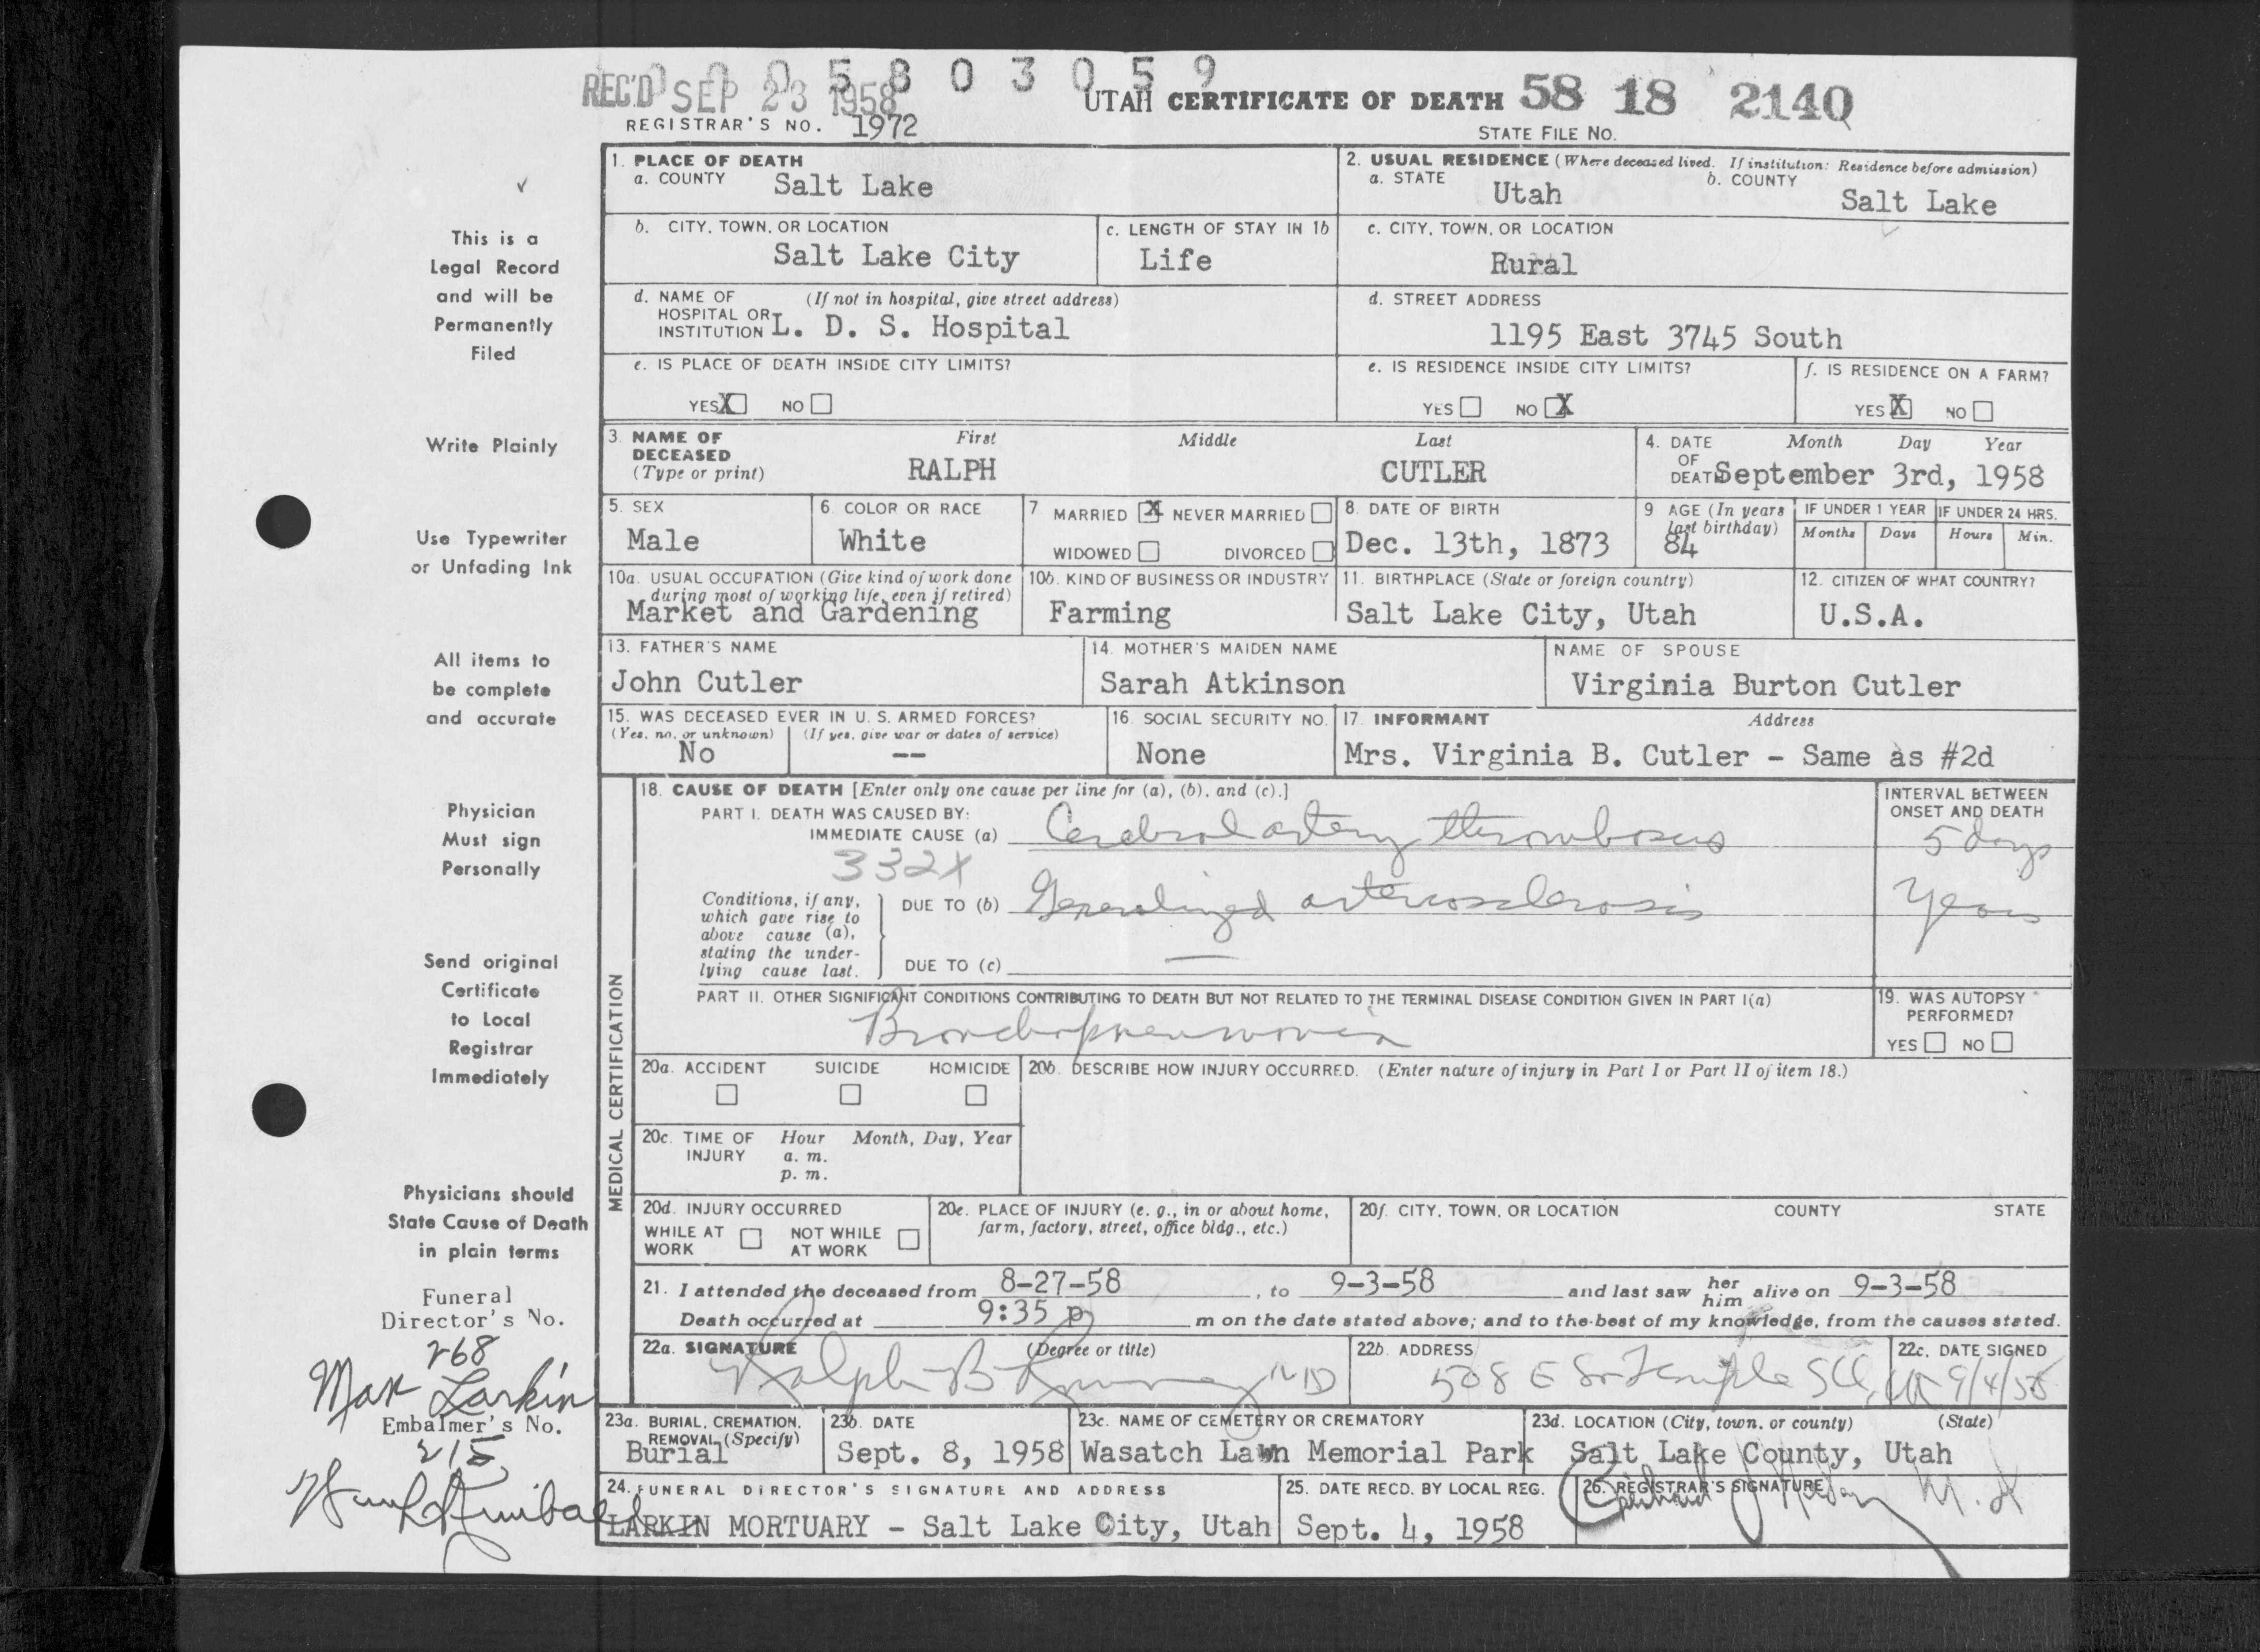 0 0 0 5 8 0 3 0 5 9
REC'D SEP 23 1958
UTAH CERTIFICATE OF DEATH 58 18 2140
REGISTRAR'S NO. 1972
STATE FILE NO.
This is a
Legal Record
and will be
Permanently
Filed
Write Plainly
Use Typewriter
or Unfading Ink
All items to
be complete
and accurate
Physician
Must sign
Personally
Send original
Certificate
to Local
Registrar
Immediately
Physicians should
State Cause of Death
in plain terms
Funeral
Director's No.
268
Max Larkin
Embalmer's No.
215
1. PLACE OF DEATH
a. COUNTY Salt Lake
2. USUAL RESIDENCE (Where deceased lived. If institution: Residence before admission)
a. STATE Utah b. COUNTY Salt Lake
b. CITY, TOWN, OR LOCATION
Salt Lake City
c. LENGTH OF STAY IN 1b
Life
c. CITY, TOWN, OR LOCATION
Rural
d. NAME OF (If not in hospital, give street address)
HOSPITAL OR
INSTITUTION L. D. S. Hospital
d. STREET ADDRESS
1195 East 3745 South
e. IS PLACE OF DEATH INSIDE CITY LIMITS?
YES X NO
e. IS RESIDENCE INSIDE CITY LIMITS?
YES NO X
f. IS RESIDENCE ON A FARM?
YES X NO
3. NAME OF First Middle Last
DECEASED
(Type or print) RALPH CUTLER
4. DATE Month Day Year
OF
DEATH September 3rd, 1958
5. SEX
Male
6. COLOR OR RACE
White
7 MARRIED X NEVER MARRIED
WIDOWED DIVORCED
8. DATE OF BIRTH
Dec. 13th, 1873
9 AGE (In years
last birthday)
84
IF UNDER 1 YEAR
Months Days
IF UNDER 24 HRS.
Hours Min.
10a. USUAL OCCUPATION (Give kind of work done
during most of working life, even if retired)
Market and Gardening
10b. KIND OF BUSINESS OR INDUSTRY
Farming
11. BIRTHPLACE (State or foreign country)
Salt Lake City, Utah
12. CITIZEN OF WHAT COUNTRY?
U.S.A.
13. FATHER'S NAME
John Cutler
14. MOTHER'S MAIDEN NAME
Sarah Atkinson
NAME OF SPOUSE
Virginia Burton Cutler
15. WAS DECEASED EVER IN U. S. ARMED FORCES?
(Yes, no, or unknown) (If yes, give war or dates of service)
No --
16. SOCIAL SECURITY NO.
None
17. INFORMANT Address
Mrs. Virginia B. Cutler - Same as #2d
MEDICAL CERTIFICATION
18. CAUSE OF DEATH [Enter only one cause per line for (a), (b), and (c).]
INTERVAL BETWEEN
ONSET AND DEATH
PART I. DEATH WAS CAUSED BY:
IMMEDIATE CAUSE (a) Cerebral artery thrombosis 5 days
332X
Conditions, if any,
which gave rise to
above cause (a),
stating the under-
lying cause last.
DUE TO (b) Generalized arteriosclerosis Years
DUE TO (c) —
PART II. OTHER SIGNIFICANT CONDITIONS CONTRIBUTING TO DEATH BUT NOT RELATED TO THE TERMINAL DISEASE CONDITION GIVEN IN PART I(a)
Bronchopneumonia
19. WAS AUTOPSY
PERFORMED?
YES NO
20a. ACCIDENT SUICIDE HOMICIDE
20b. DESCRIBE HOW INJURY OCCURRED. (Enter nature of injury in Part I or Part II of item 18.)
20c. TIME OF Hour Month, Day, Year
INJURY a. m.
p. m.
20d. INJURY OCCURRED
WHILE AT NOT WHILE
WORK AT WORK
20e. PLACE OF INJURY (e. g., in or about home,
farm, factory, street, office bldg., etc.)
20f. CITY, TOWN, OR LOCATION COUNTY STATE
21. I attended the deceased from 8-27-58, to 9-3-58 and last saw her him alive on 9-3-58
Death occurred at 9:35 p m on the date stated above; and to the best of my knowledge, from the causes stated.
22a. SIGNATURE (Degree or title)
Ralph B MD
22b. ADDRESS
508 E So Temple SLC, Ut
22c. DATE SIGNED
9/4/58
23a. BURIAL, CREMATION,
REMOVAL (Specify)
Burial
23b. DATE
Sept. 8, 1958
23c. NAME OF CEMETERY OR CREMATORY
Wasatch Lawn Memorial Park
23d. LOCATION (City, town, or county) (State)
Salt Lake County, Utah
24. FUNERAL DIRECTOR'S SIGNATURE AND ADDRESS
LARKIN MORTUARY - Salt Lake City, Utah
25. DATE RECD. BY LOCAL REG.
Sept. 4, 1958
26. REGISTRAR'S SIGNATURE